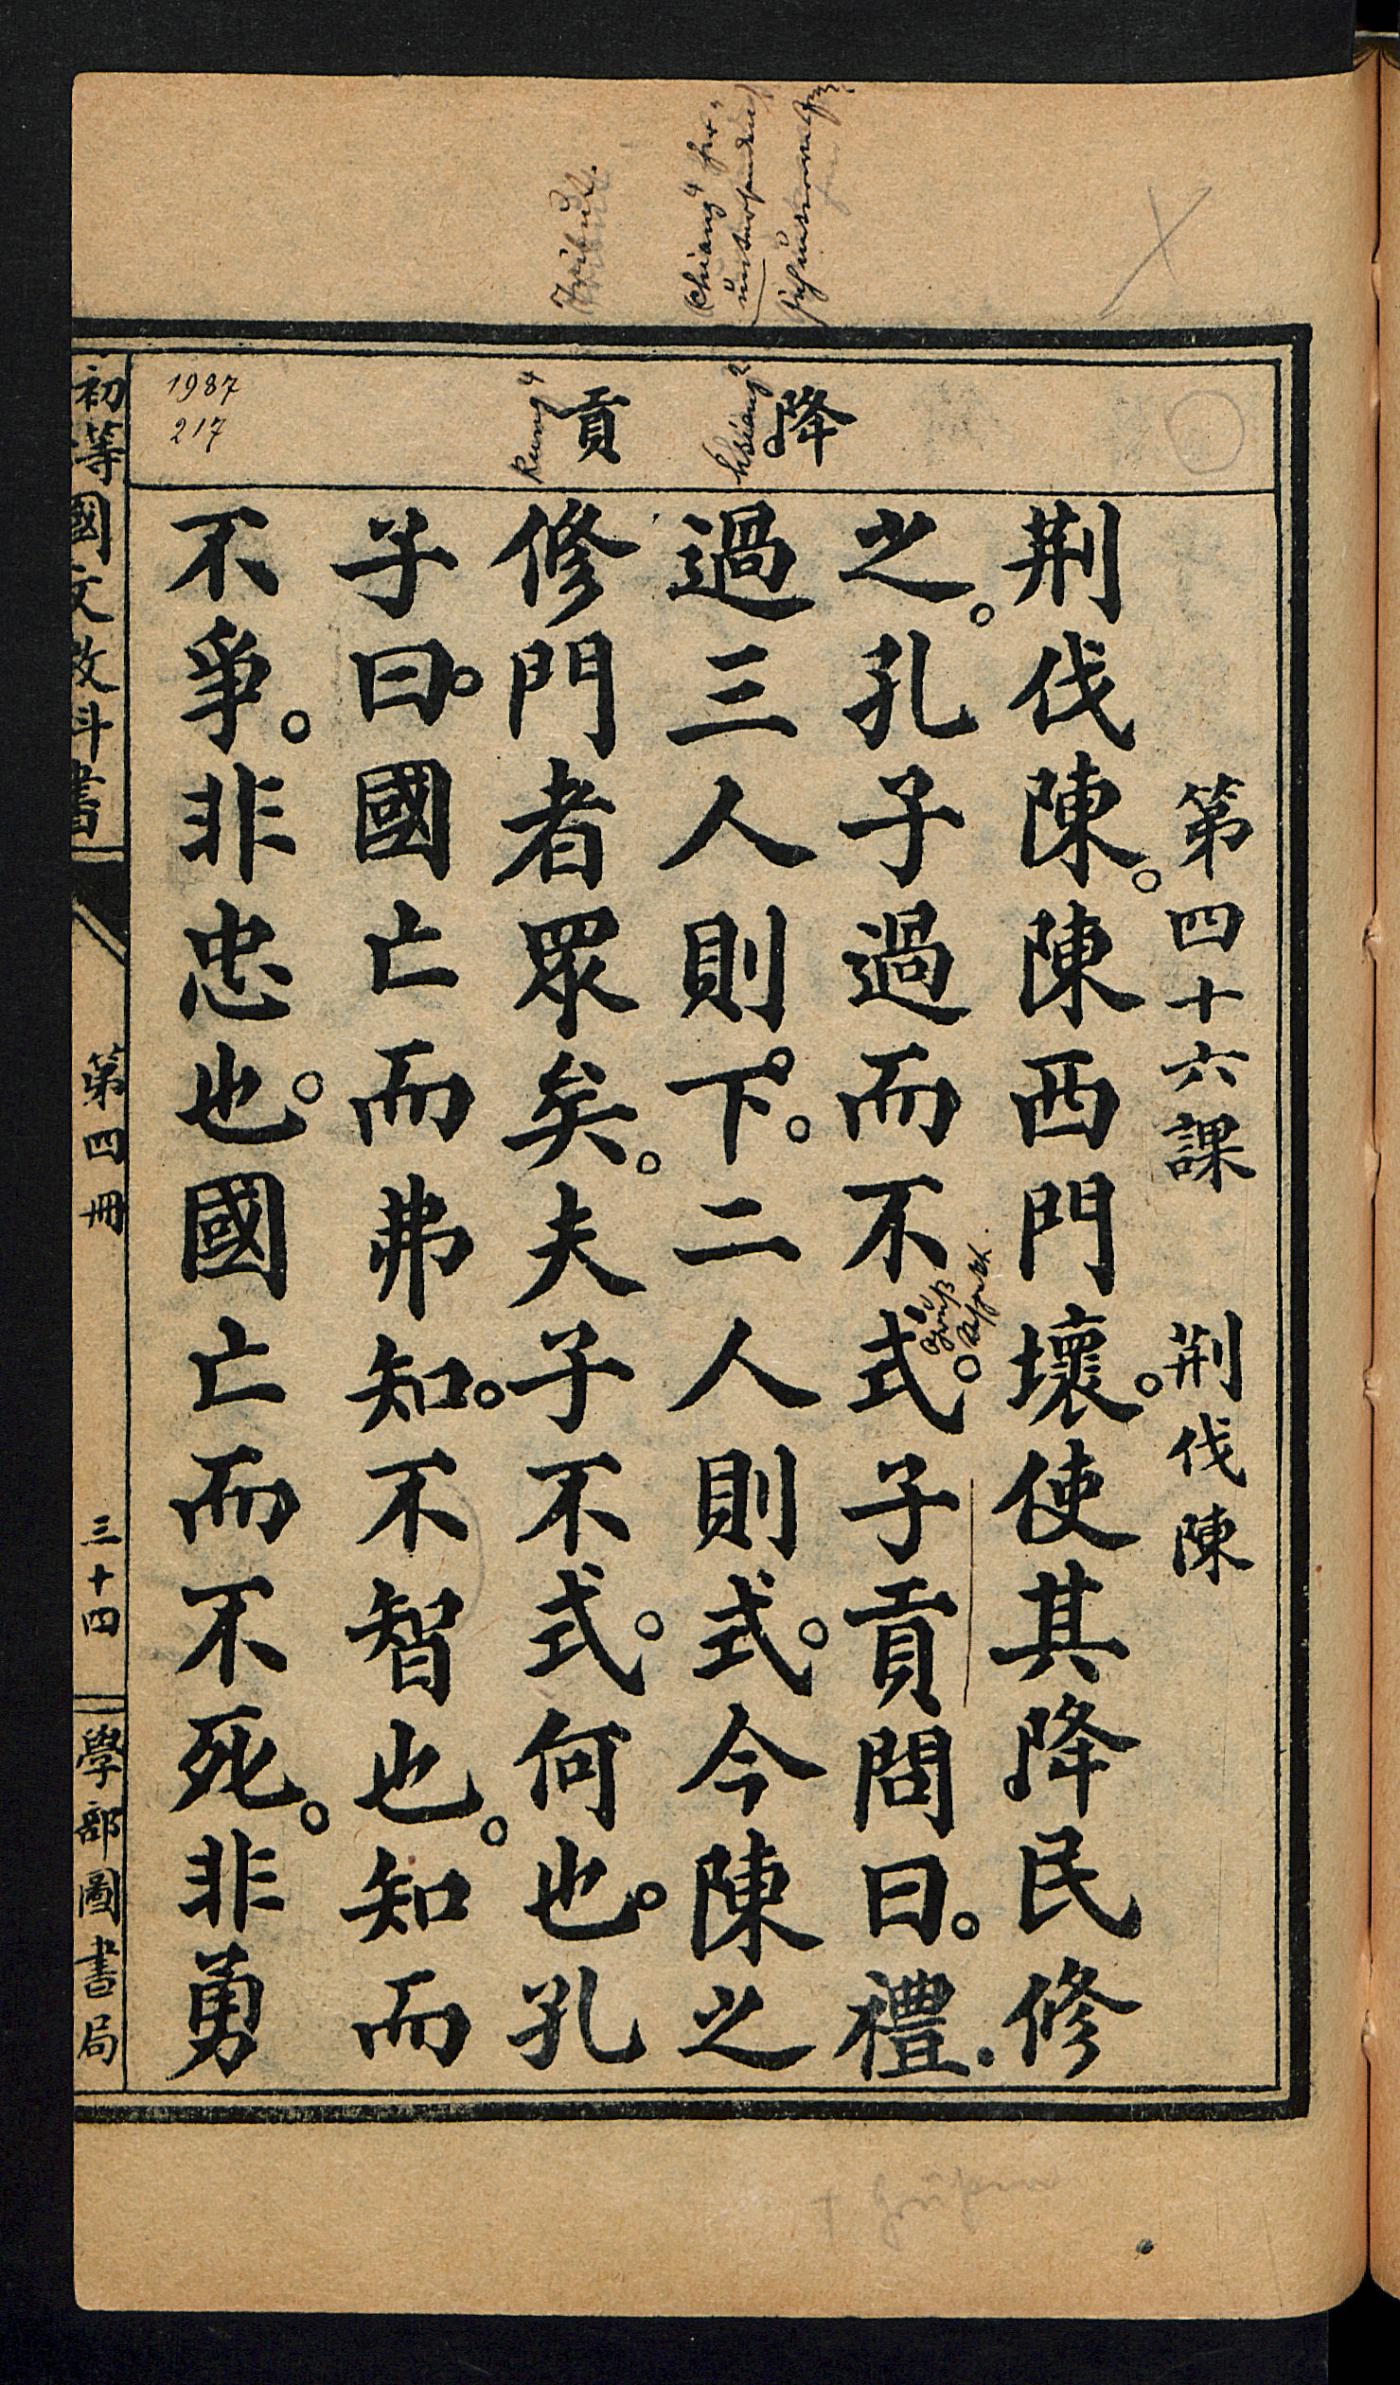 第四十六課 荆伐陳
降
貢
hsiang²
kung⁴
Tribut.
chiang⁴
荆伐陳。陳西門壞。使其降民修
之。孔子過而不式。子貢問曰。禮.
過三人則下。二人則式。今陳之
修門者眾矣。夫子不式。何也。孔
子曰。國亡而弗知。不智也。知而
不爭。非忠也。國亡而不死。非勇
1987
217
初等國文教科書
第四冊
三十四
學部圖書局